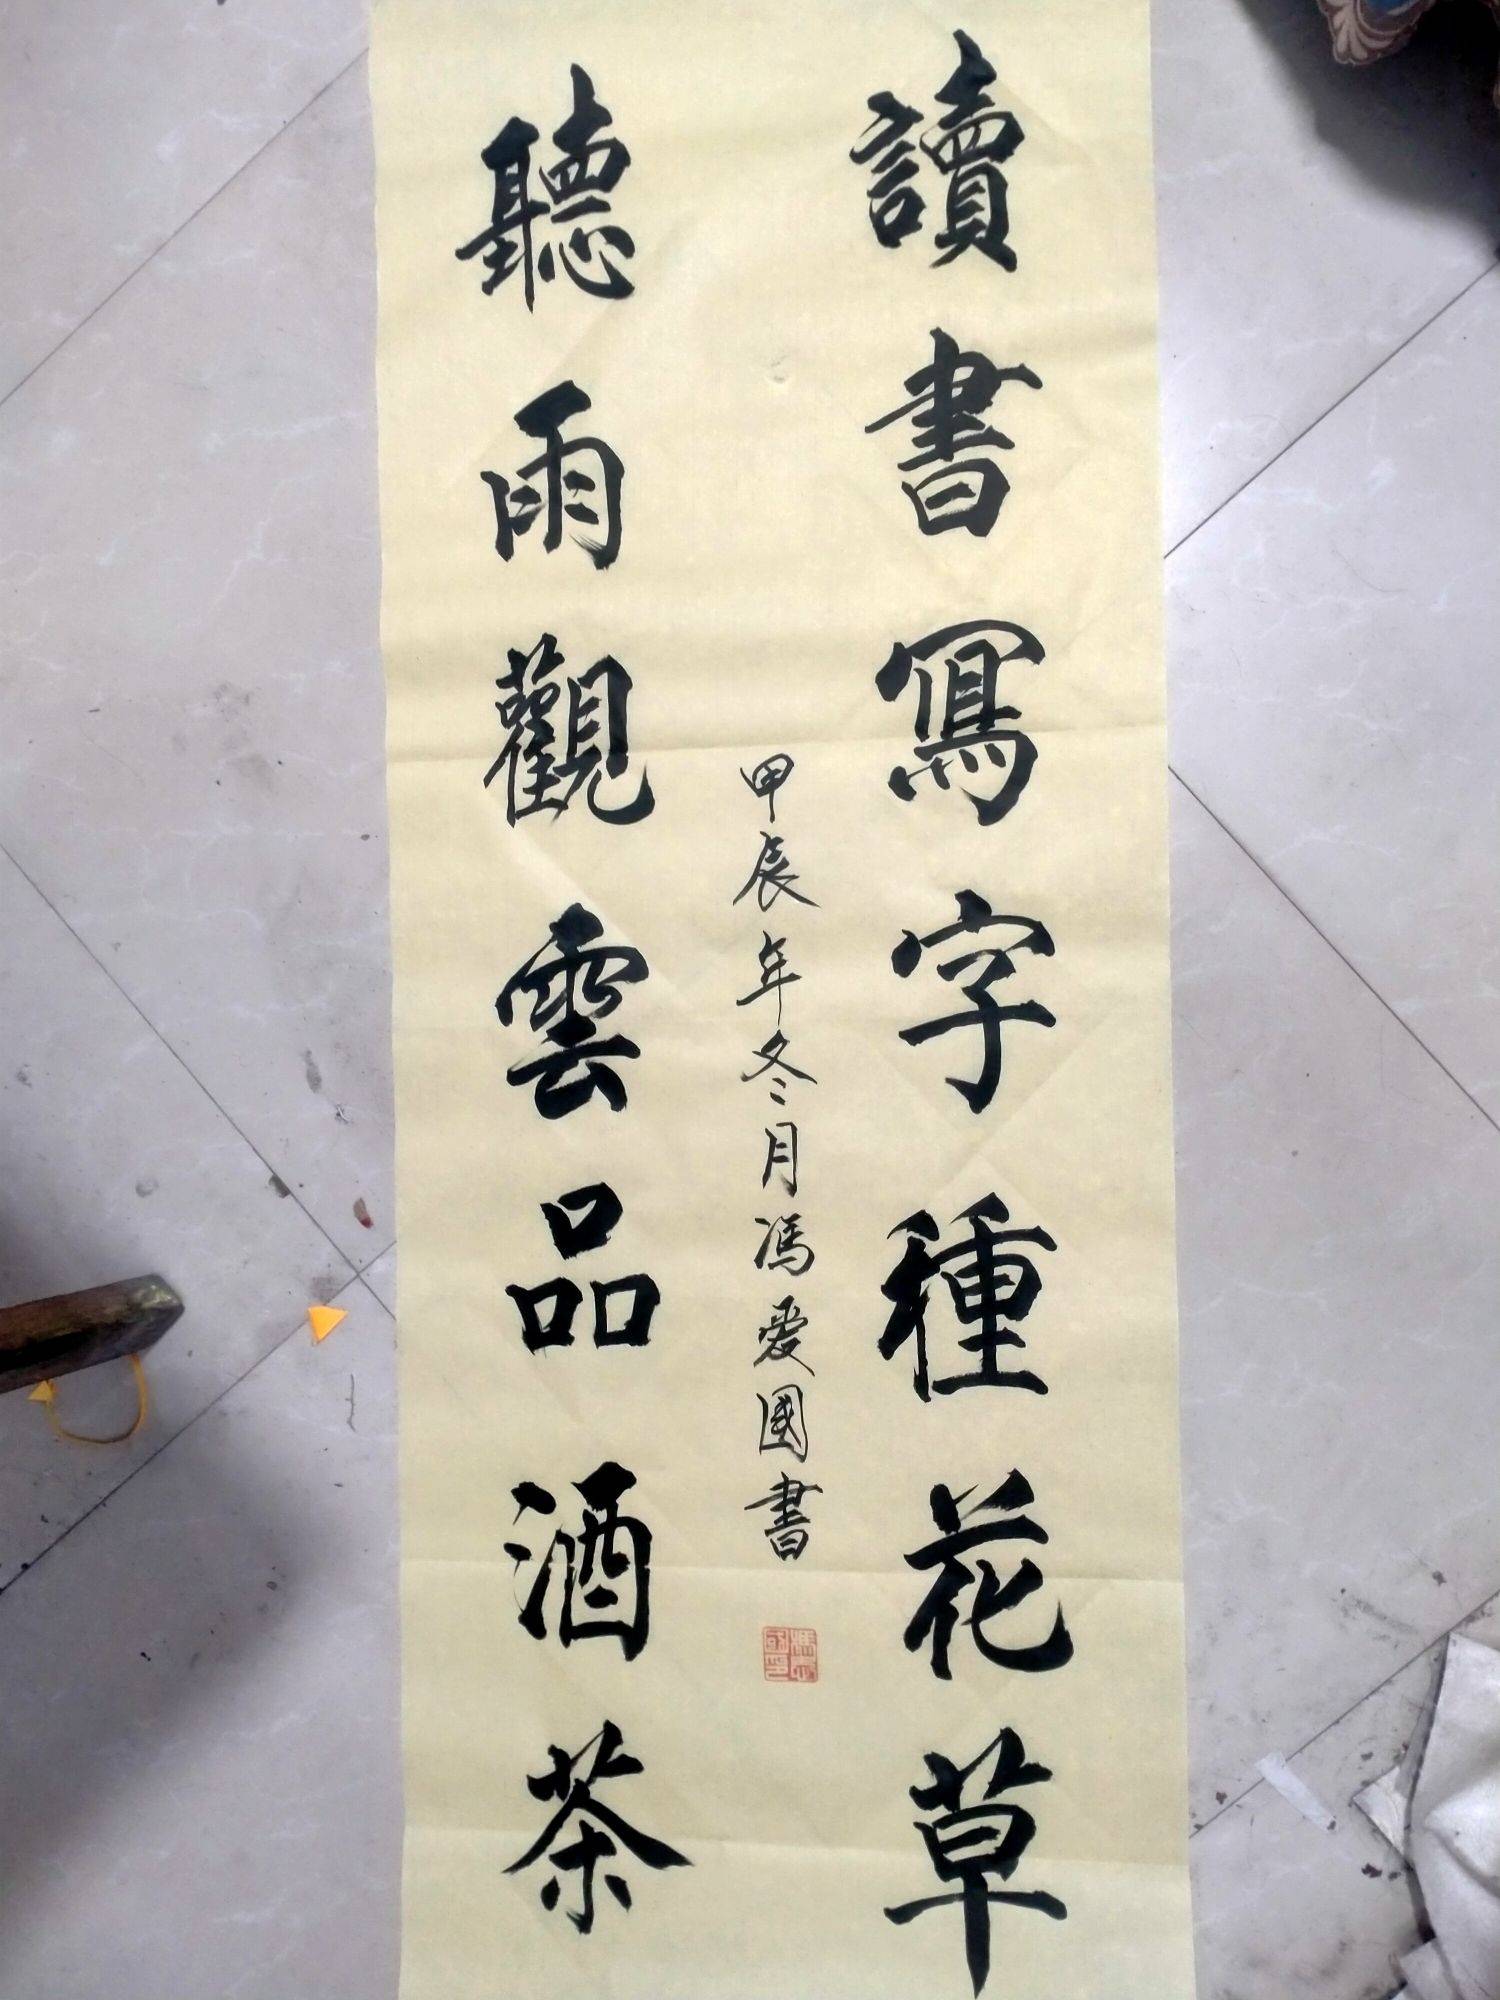 讀書寫字種花草
聽雨觀雲品酒茶
甲辰年冬月馮爱國書